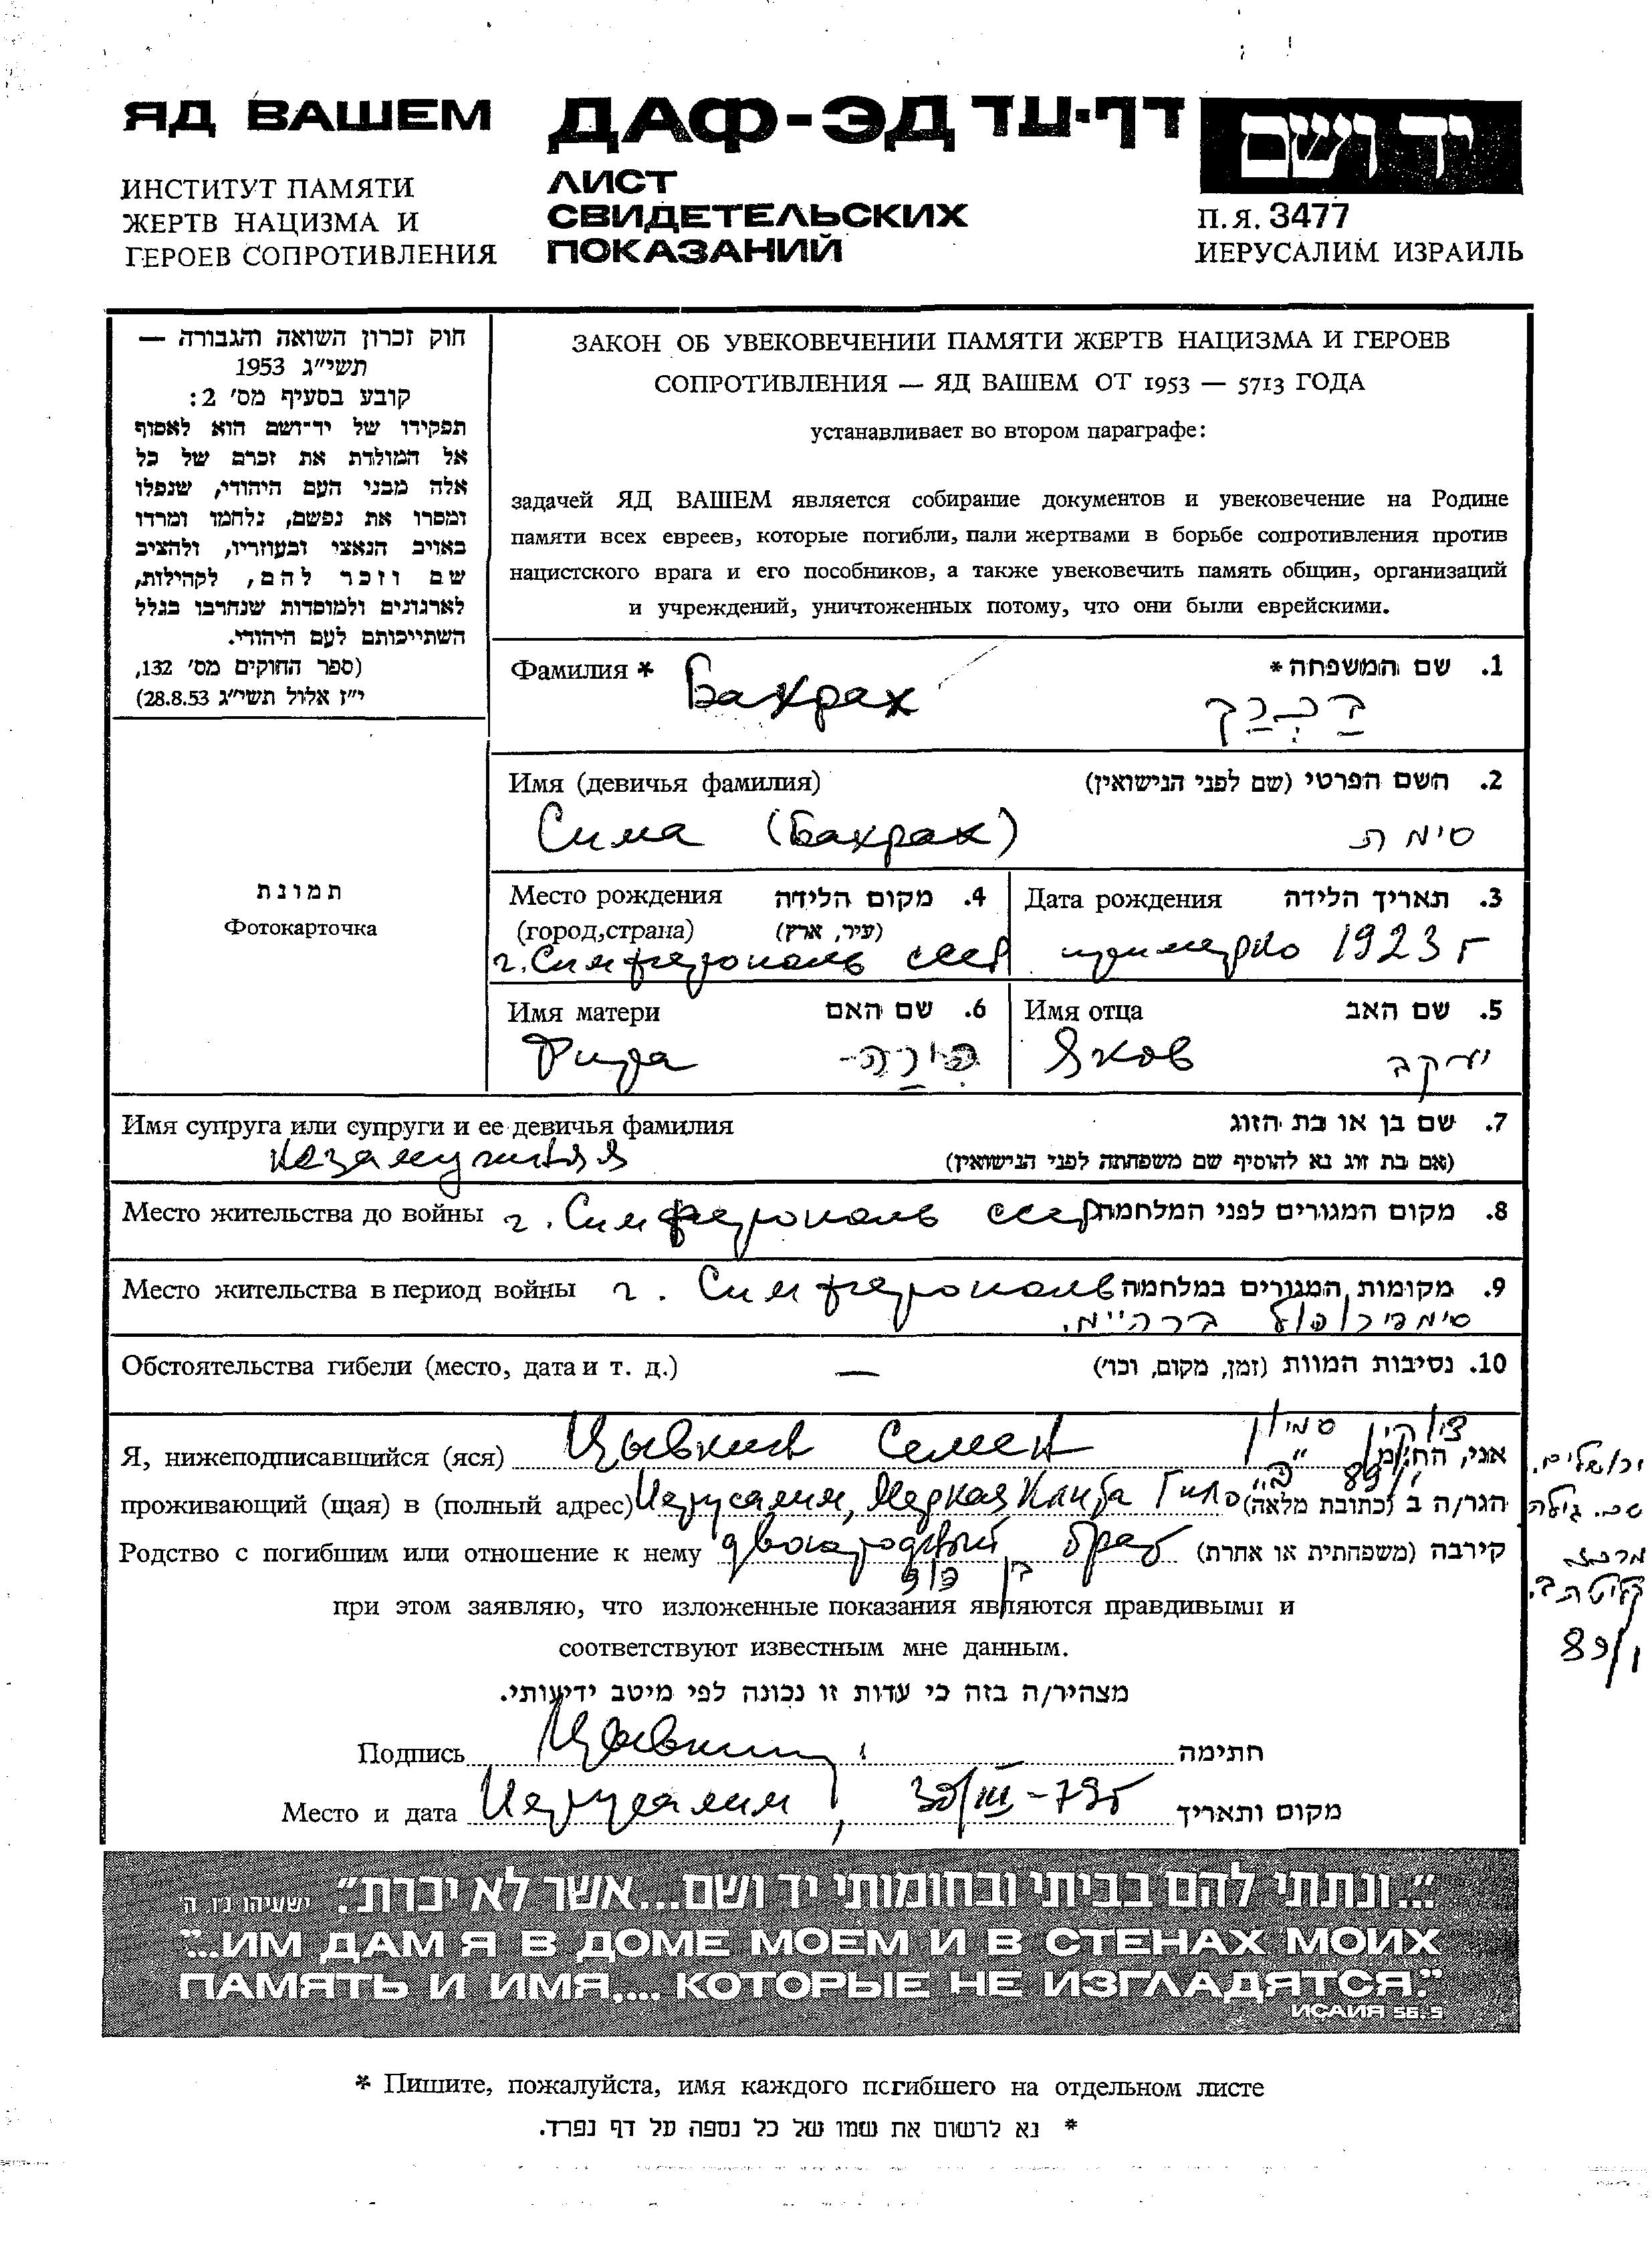 ЯД ВАШЕМ
ДАФ-ЭД דף-עד
יד ושם
ИНСТИТУТ ПАМЯТИ
ЖЕРТВ НАЦИЗМА И
ГЕРОЕВ СОПРОТИВЛЕНИЯ
ЛИСТ
СВИДЕТЕЛЬСКИХ
ПОКАЗАНИЙ
П.Я. 3477
ИЕРУСАЛИМ ИЗРАИЛЬ
חוק זכרון השואה והגבורה —
תשי״ג 1953
קובע בסעיף מס׳ 2:
תפקידו של יד־ושם הוא לאסוף
אל המולדת את זכרם של כל
אלה מבני העם היהודי, שנפלו
ומסרו את נפשם, נלחמו ומרדו
באויב הנאצי ובעוזריו, ולהציב
שם וזכר להם, לקהילות,
לארגונים ולמוסדות שנחרבו בגלל
השתייכותם לעם היהודי.
(ספר החוקים מס׳ 132,
י״ז אלול תשי״ג 28.8.53)
ЗАКОН ОБ УВЕКОВЕЧЕНИИ ПАМЯТИ ЖЕРТВ НАЦИЗМА И ГЕРОЕВ
СОПРОТИВЛЕНИЯ — ЯД ВАШЕМ ОТ 1953 — 5713 ГОДА
устанавливает во втором параграфе:
задачей ЯД ВАШЕМ является собирание документов и увековечение на Родине
памяти всех евреев, которые погибли, пали жертвами в борьбе сопротивления против
нацистского врага и его пособников, а также увековечить память общин, организаций
и учреждений, уничтоженных потому, что они были еврейскими.
Фамилия * Бахрах 1. שם המשפחה *
בכרך
Имя (девичья фамилия) 2. השם הפרטי (שם לפני הנישואין)
Сима (Бахрах) סימה
תמונת
Фотокарточка
Место рождения 4. מקום הלידה
(город,страна) (עיר, ארץ)
г. Симферополь СССР
Дата рождения 3. תאריך הלידה
примерно 1923 г
Имя матери 6. שם האם
Фира פירה
Имя отца 5. שם האב
Яков יעקב
Имя супруга или супруги и ее девичья фамилия 7. שם בן או בת הזוג
незамужняя (אם בת זוג נא להוסיף שם משפחתה לפני הנישואין)
Место жительства до войны г. Симферополь СССР 8. מקום המגורים לפני המלחמה
Место жительства в период войны г. Симферополь 9. מקומות המגורים במלחמה
סימפירופול ברה״מ.
Обстоятельства гибели (место, дата и т. д.) — 10. נסיבות המוות (זמן, מקום, וכו׳)
ציוקין סמיון
Я, нижеподписавшийся (яся) Цывкин Семен אני, הח״מ
проживающий (щая) в (полный адрес) Иерусалим, Мерказ Клита Гило הגר/ה ב (כתובת מלאה)
89/1
ירושלים,
שכ. גילה
מרכז
קליטה ב׳
89/1
Родство с погибшим или отношение к нему двоюродный брат קירבה (משפחתית או אחרת)
בן דוד
при этом заявляю, что изложенные показания являются правдивыми и
соответствуют известным мне данным.
מצהיר/ה בזה כי עדות זו נכונה לפי מיטב ידיעותי.
Подпись Цывкин חתימה
Место и дата Иерусалим, 30/III-79г מקום ותאריך
״..ונתתי להם בביתי ובחומותי יד ושם...אשר לא יכרת״. ישעיהו נ״ו, ה׳
"...ИМ ДАМ Я В ДОМЕ МОЕМ И В СТЕНАХ МОИХ
ПАМЯТЬ И ИМЯ.... КОТОРЫЕ НЕ ИЗГЛАДЯТСЯ."
ИСАИЯ 56.5
* Пишите, пожалуйста, имя каждого погибшего на отдельном листе
* נא לרשום את שמו של כל נספה על דף נפרד.